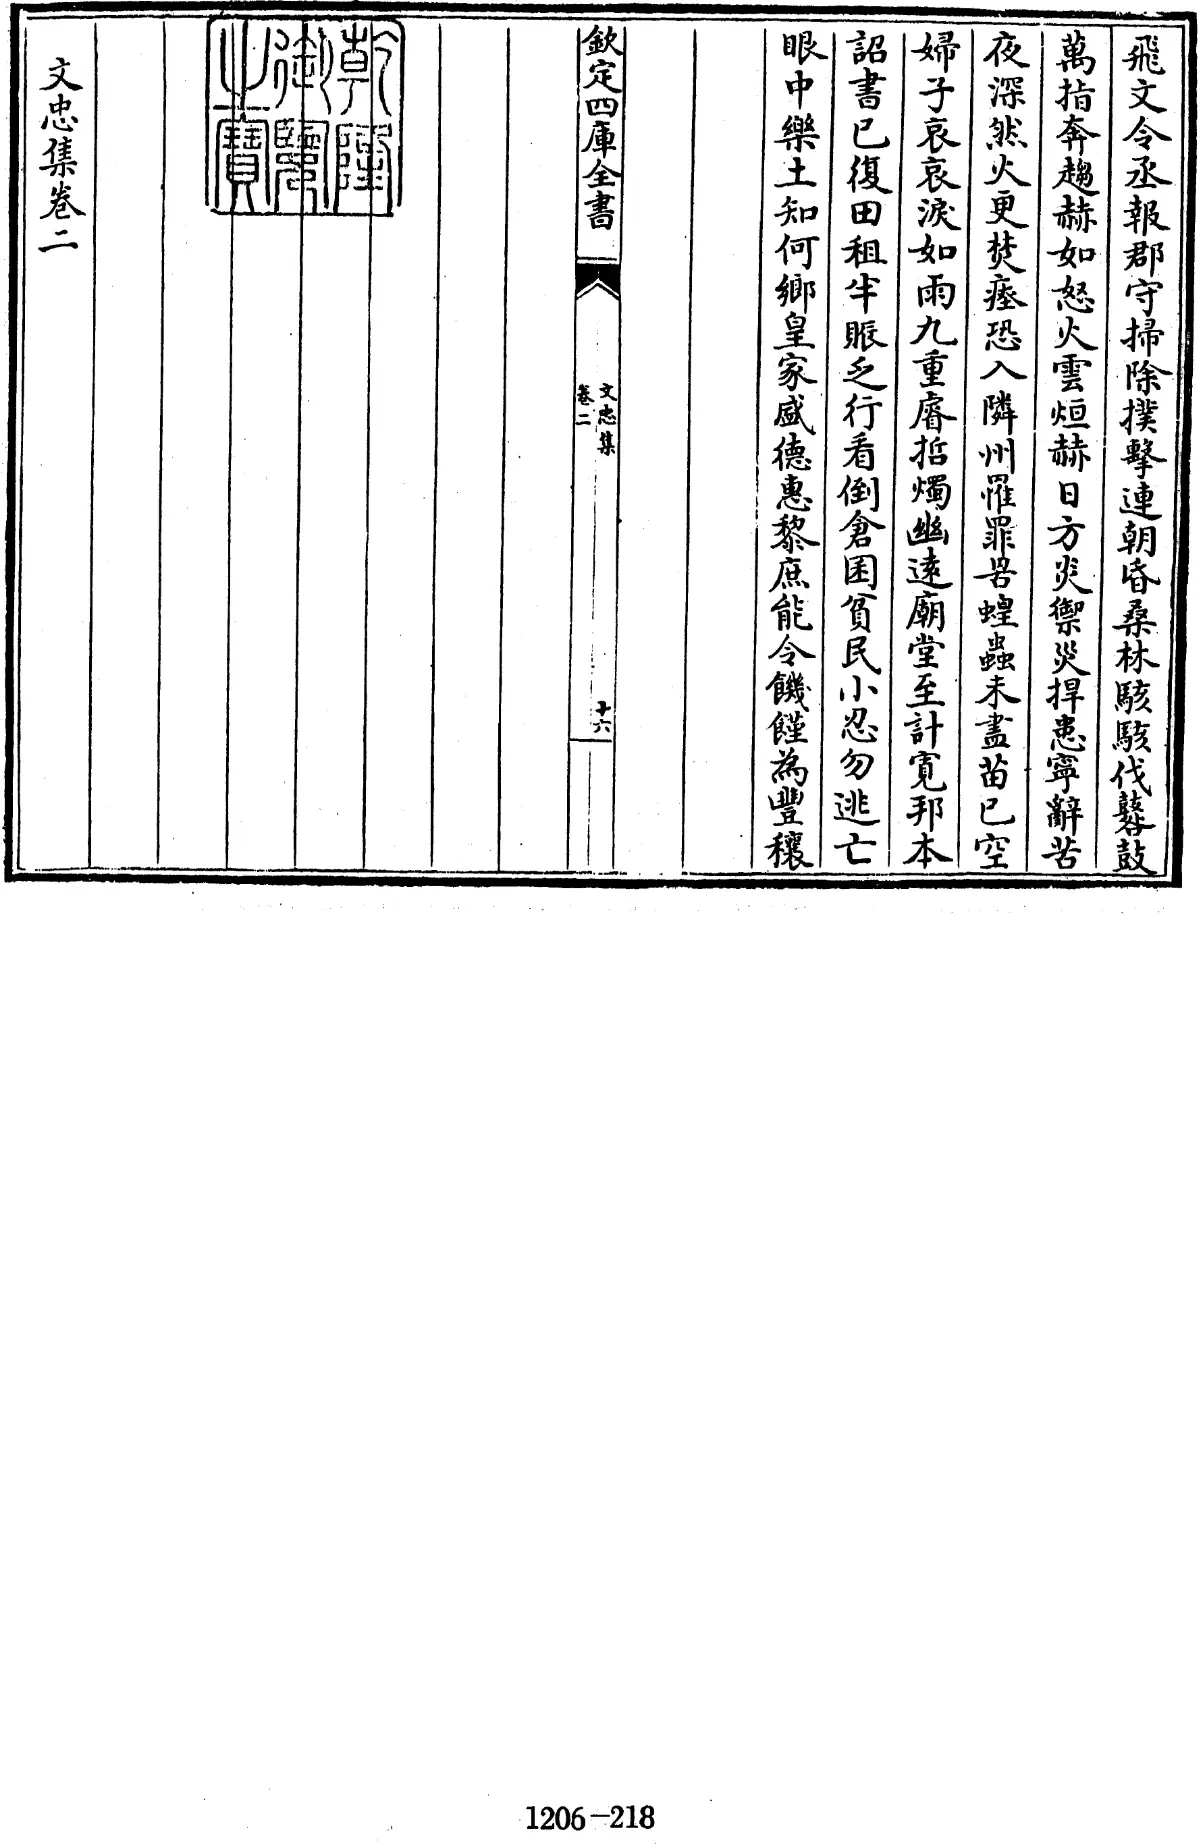 飛文令丞報郡守掃除撲擊連朝昏桑林駭駭伐鼛鼓
萬指奔趨赫如怒火雲烜赫日方炎禦災捍患寧辭苦
夜深然火更焚瘞恐入隣州罹罪罟蝗蟲未盡苗已空
婦子哀哀淚如雨九重睿哲燭幽遠廟堂至計寛邦本
詔書已復田租半賑乏行看倒倉囷貧民小忍勿逃亡
眼中樂土知何鄉皇家盛德惠黎庶能令饑饉為豐穰
欽定四庫全書
文忠集
卷二
十六
乾隆
御覽
之寶
文忠集卷二
1206-218